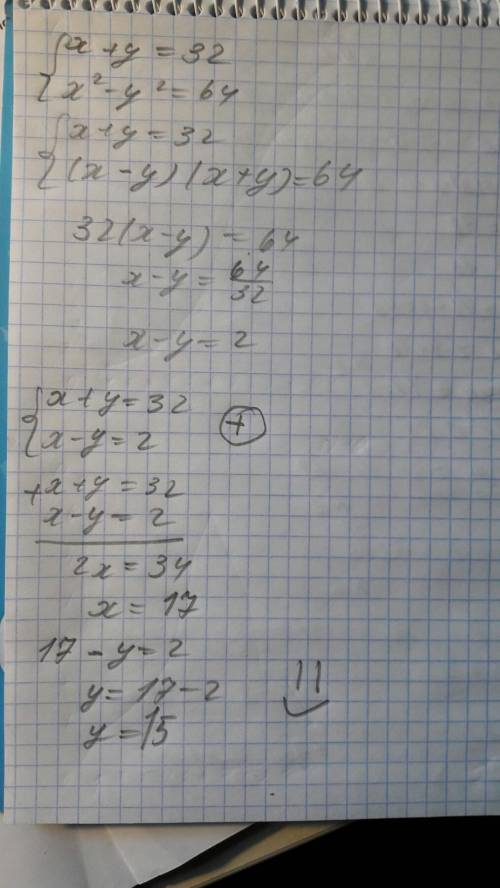 {x + y = 32
{x² - y² = 64
{x + y = 32
{(x - y)(x + y) = 64
32(x - y) = 64
x - y = 64/32
x - y = 2
{x + y = 32
{x - y = 2 +
+ x + y = 32
x - y = 2
2x = 34
x = 17
17 - y = 2
y = 17 - 2
y = 15